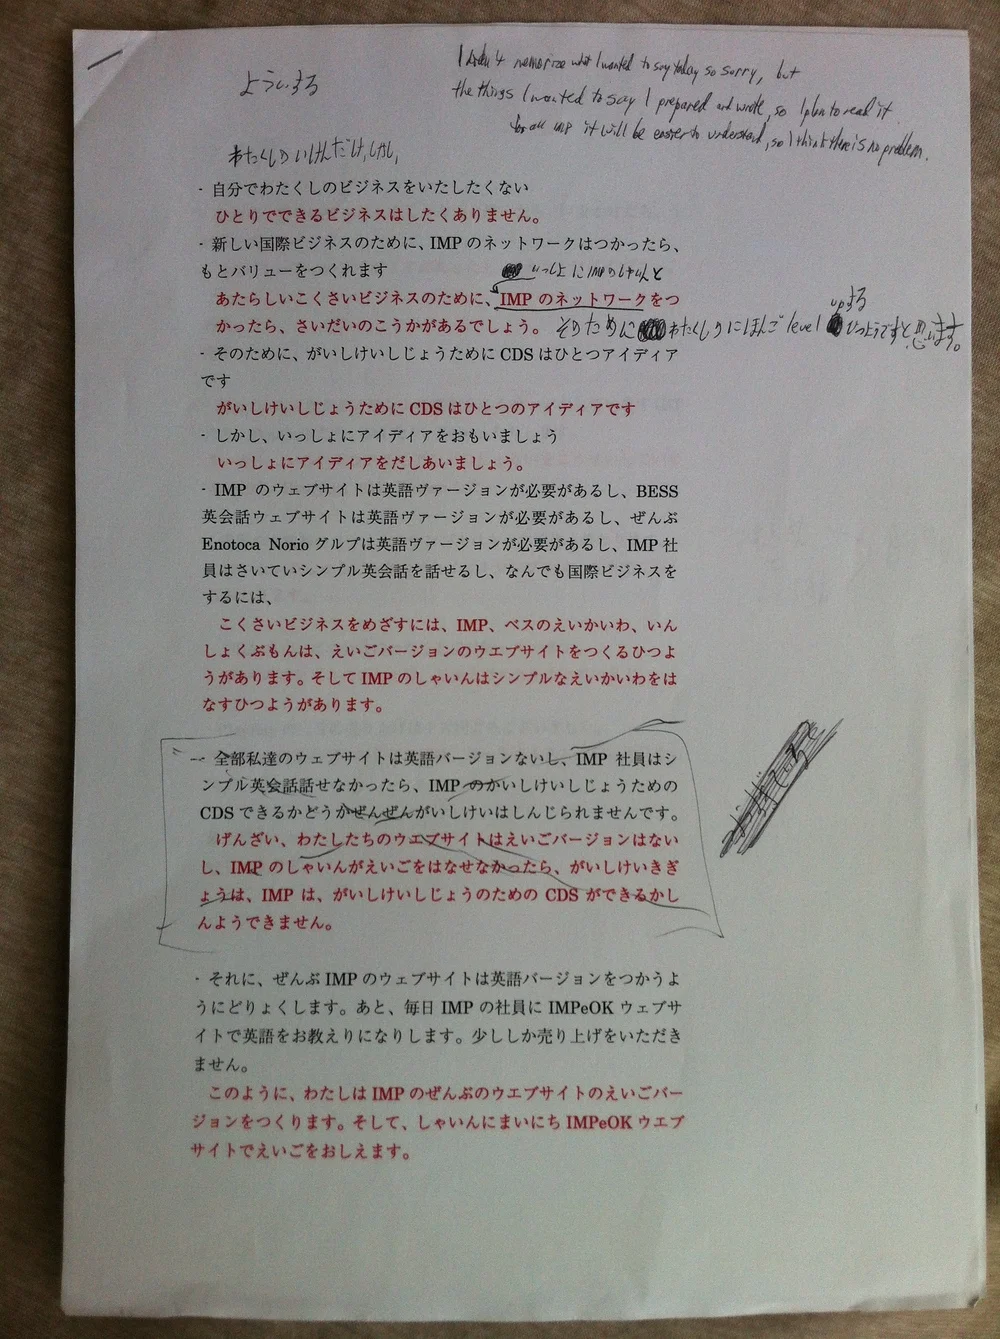 I didn't memorize what I wanted to say today so sorry, but
よういする
the things I wanted to say I prepared and wrote, so I plan to read it.
for all IMP it will be easier to understand, so I think there is no problem.
わたくしのいけんだけ,しかし,
- 自分でわたくしのビジネスをいたしたくない
ひとりでできるビジネスはしたくありません。
- 新しい国際ビジネスのために、IMP のネットワークはつかったら、
もとバリューをつくれます
いっしょにIMPのしゃいんと
あたらしいこくさいビジネスのために、IMP のネットワークをつ
upする
かったら、さいだいのこうかがあるでしょう。そのためにわたくしのにほんごlevelひつようですと思います。
- そのために、がいしけいしじょうために CDS はひとつアイディア
です
がいしけいしじょうために CDS はひとつのアイディアです
- しかし、いっしょにアイディアをおもいましょう
いっしょにアイディアをだしあいましょう。
- IMP のウェブサイトは英語ヴァージョンが必要があるし、BESS
英会話ウェブサイトは英語ヴァージョンが必要があるし、ぜんぶ
Enotoca Norio グルプは英語ヴァージョンが必要があるし、IMP 社
員はさいていシンプル英会話を話せるし、なんでも国際ビジネスを
するには、
こくさいビジネスをめざすには、IMP、ベスのえいかいわ、いん
しょくぶもんは、えいごバージョンのウエブサイトをつくるひつよ
うがあります。そして IMP のしゃいんはシンプルなえいかいわをは
なすひつようがあります。
- 全部私達のウェブサイトは英語バージョンないし、IMP 社員はシ
ンプル英会話話せなかったら、IMP のがいしけいしじょうための
CDS できるかどうかぜんぜんがいしけいはしんじられませんです。
げんざい、わたしたちのウエブサイトはえいごバージョンはない
し、IMP のしゃいんがえいごをはなせなかったら、がいしけいきぎ
ょうは、IMP は、がいしけいしじょうのための CDS ができるかし
んようできません。
- それに、ぜんぶ IMP のウェブサイトは英語バージョンをつかうよ
うにどりょくします。あと、毎日 IMP の社員に IMPeOK ウェブサ
イトで英語をお教えりになりします。少ししか売り上げをいただき
ません。
このように、わたしは IMP のぜんぶのウエブサイトのえいごバー
ジョンをつくります。そして、しゃいんにまいにち IMPeOK ウエブ
サイトでえいごをおしえます。